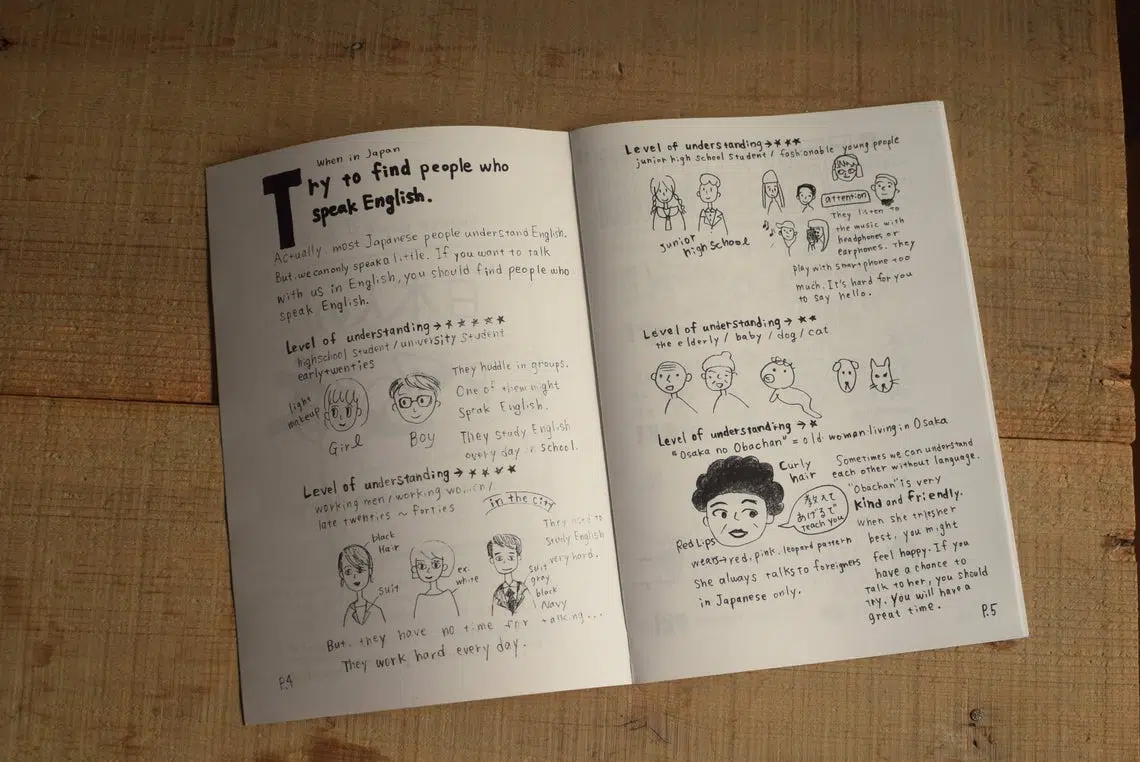 When in Japan
Try to find people who
speak English.
Actually, most Japanese people understand English.
But, we can only speak a little. If you want to talk
with us in English, you should find people who
speak English.
Level of understanding → ★★★★★
highschool student / university student
early twenties
light
makeup
Girl
Boy
They huddle in groups.
One of them might
Speak English.
They study English
every day in School.
Level of understanding → ★★★★
working men / working women /
late twenties ~ forties
in the city
black
Hair
suit
ex.
white
suit
gray
black
Navy
They used to
study English
very hard.
But, they have no time for talking...
They work hard every day.
P.4
Level of understanding → ★★★
junior high school student / fashionable young people
junior
high school
attention
They listen to
the music with
headphones or
earphones. They
play with smartphone too
much. It's hard for you
to say hello.
Level of understanding → ★★
the elderly / baby / dog / cat
Level of understanding → ★
"Osaka no Obachan" = old woman living in Osaka
Curly
hair
教えて
あげるで
Teach you
Red Lips
wears → red, pink, leopard pattern
She always talks to foreigners
in Japanese only.
Sometimes we can understand
each other without language.
"Obachan" is very
kind and friendly.
When she tries her
best, you might
feel happy. If you
have a chance to
talk to her, you should
try. You will have a
great time.
P.5